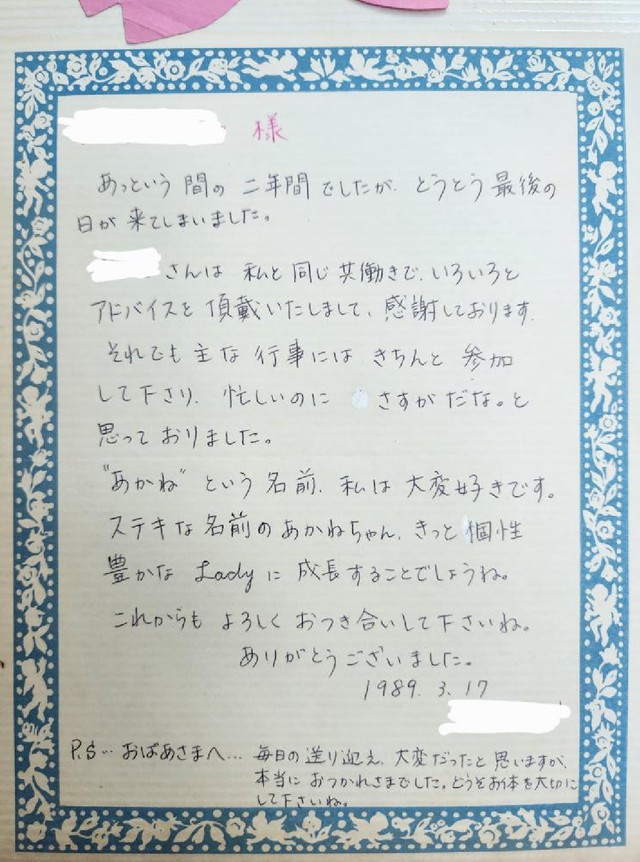 様
あっという間の二年間でしたが、とうとう最後の
日が来てしまいました。
さんは 私と同じ共働きで、いろいろと
アドバイスを頂戴いたしまして、感謝しております。
それでも主な行事には きちんと 参加
して下さり、忙しいのに さすがだな。と
思っておりました。
"あかね"という名前、私は大変好きです。
ステキな名前のあかねちゃん、きっと個性
豊かな Ladyに 成長することでしょうね。
これからも よろしく おつき合いして下さいね。
ありがとうございました。
1989. 3. 17
P.S… おばあさまへ… 毎日の送り迎え、大変だったと思いますが、
本当に おつかれさまでした。どうぞお体を大切に
して下さいね。